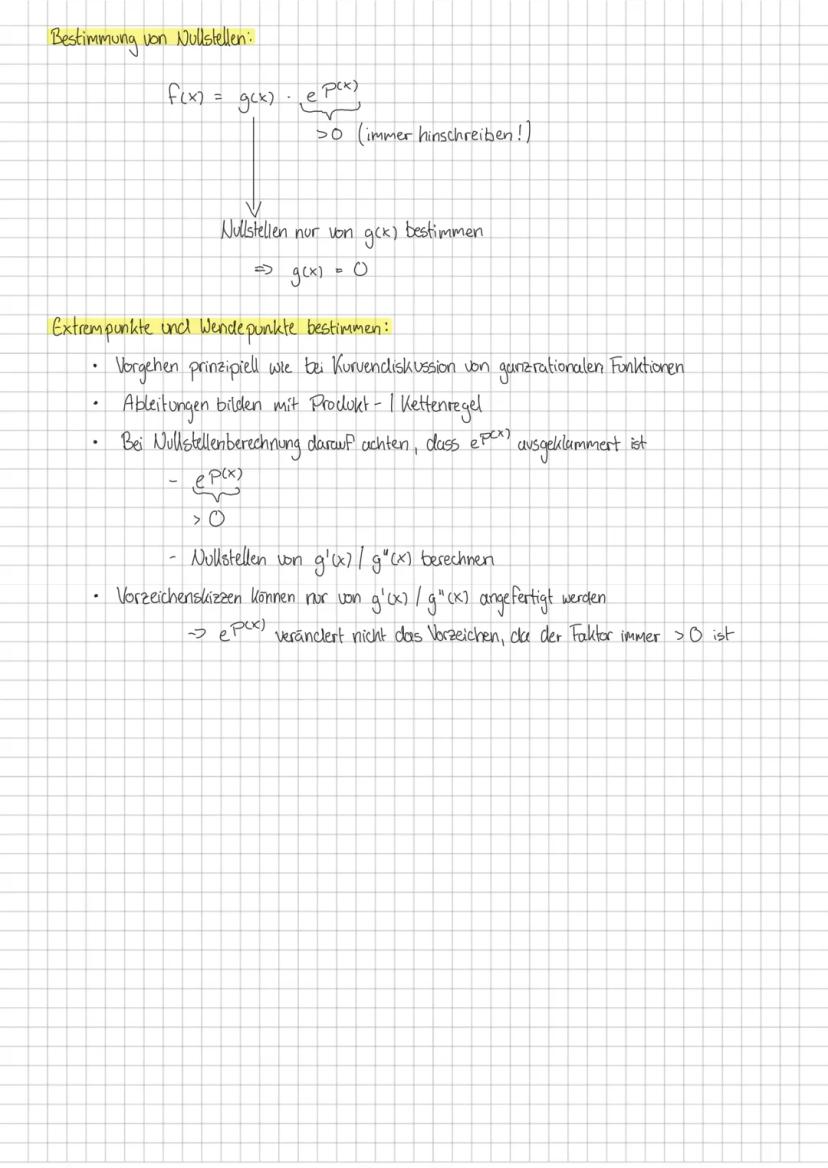 Bestimmung von Nullstellen:
f(x) = g(x) · e^p(x)
>0 (immer hinschreiben!)
Nullstellen nur von g(x) bestimmen
⇒ g(x) = 0
Extrempunkte und Wendepunkte bestimmen:
• Vorgehen prinzipiell wie bei Kurvendiskussion von ganzrationalen Funktionen
• Ableitungen bilden mit Produkt- / Kettenregel
• Bei Nullstellenberechnung darauf achten, dass e^p(x) ausgeklammert ist
- e^p(x)
> 0
- Nullstellen von g'(x) / g"(x) berechnen
• Vorzeichenskizzen können nur von g'(x) / g"(x) angefertigt werden
→ e^p(x) verändert nicht das Vorzeichen, da der Faktor immer > 0 ist